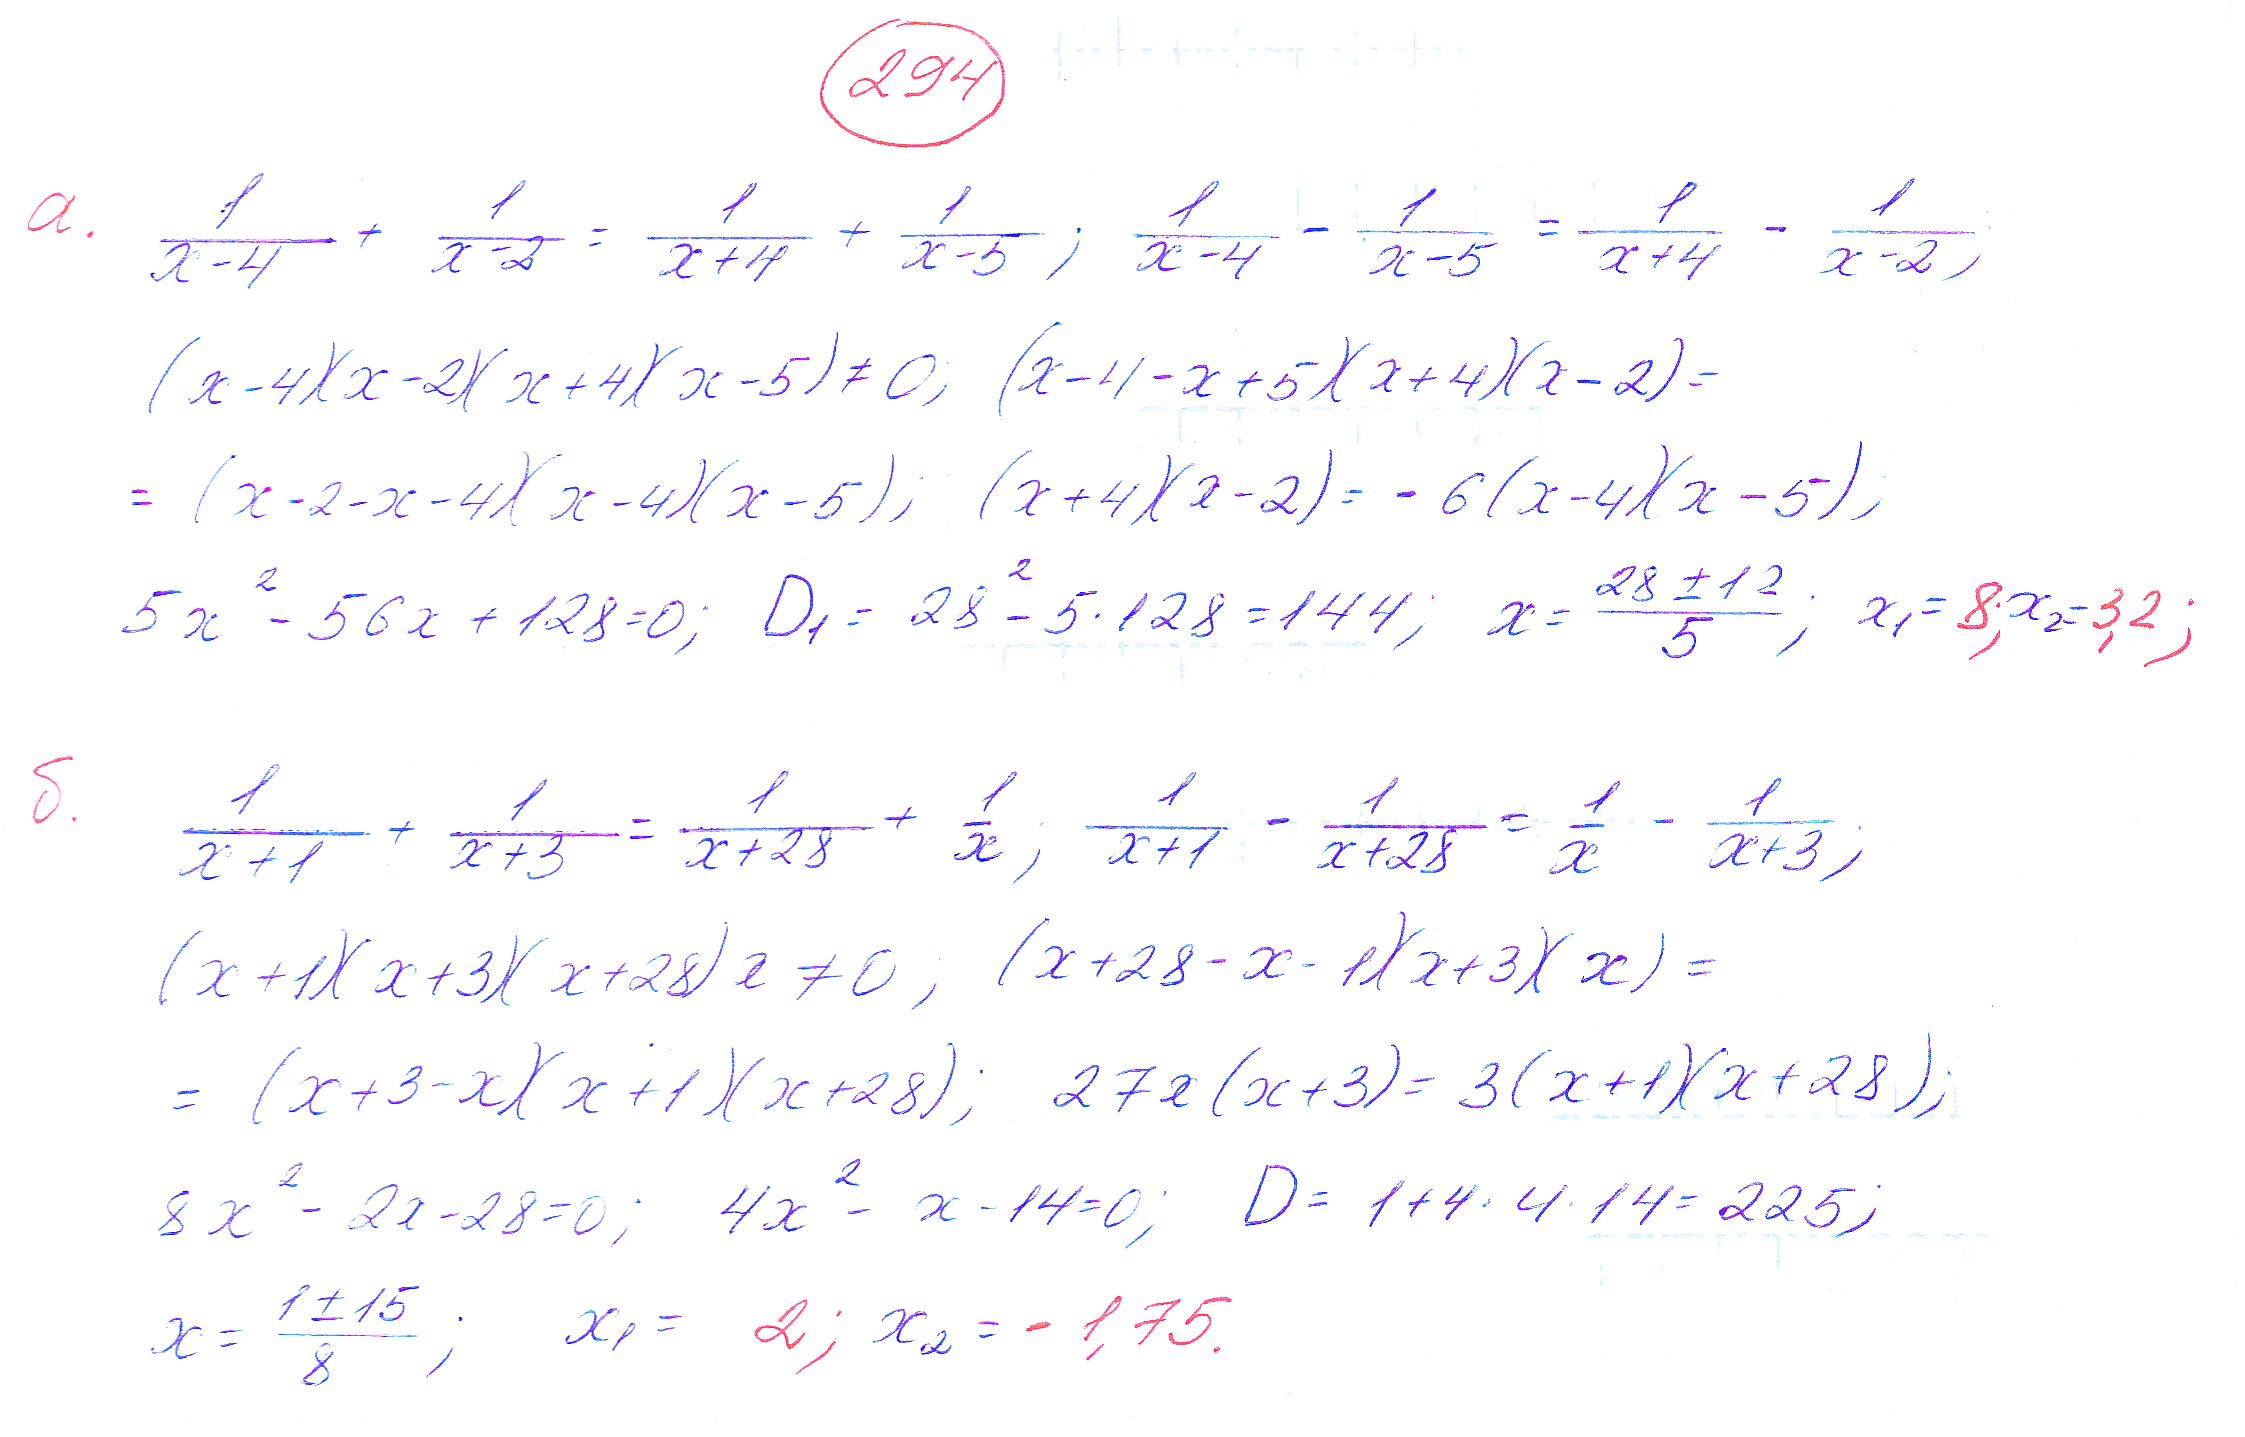 294
а. 1/(x-4) + 1/(x-2) = 1/(x+4) + 1/(x-5); 1/(x-4) - 1/(x-5) = 1/(x+4) - 1/(x-2);
(x-4)(x-2)(x+4)(x-5) ≠ 0; (x-4-x+5)(x+4)(x-2) =
= (x-2-x-4)(x-4)(x-5); (x+4)(x-2) = -6(x-4)(x-5);
5x² - 56x + 128 = 0; D₁ = 28² - 5·128 = 144; x = (28 ± 12)/5; x₁ = 8; x₂ = 3,2;
б. 1/(x+1) + 1/(x+3) = 1/(x+28) + 1/x; 1/(x+1) - 1/(x+28) = 1/x - 1/(x+3);
(x+1)(x+3)(x+28)x ≠ 0; (x+28-x-1)(x+3)(x) =
= (x+3-x)(x+1)(x+28); 27x(x+3) = 3(x+1)(x+28);
8x² - 2x - 28 = 0; 4x² - x - 14 = 0; D = 1 + 4·4·14 = 225;
x = (1 ± 15)/8; x₁ = 2; x₂ = -1,75.